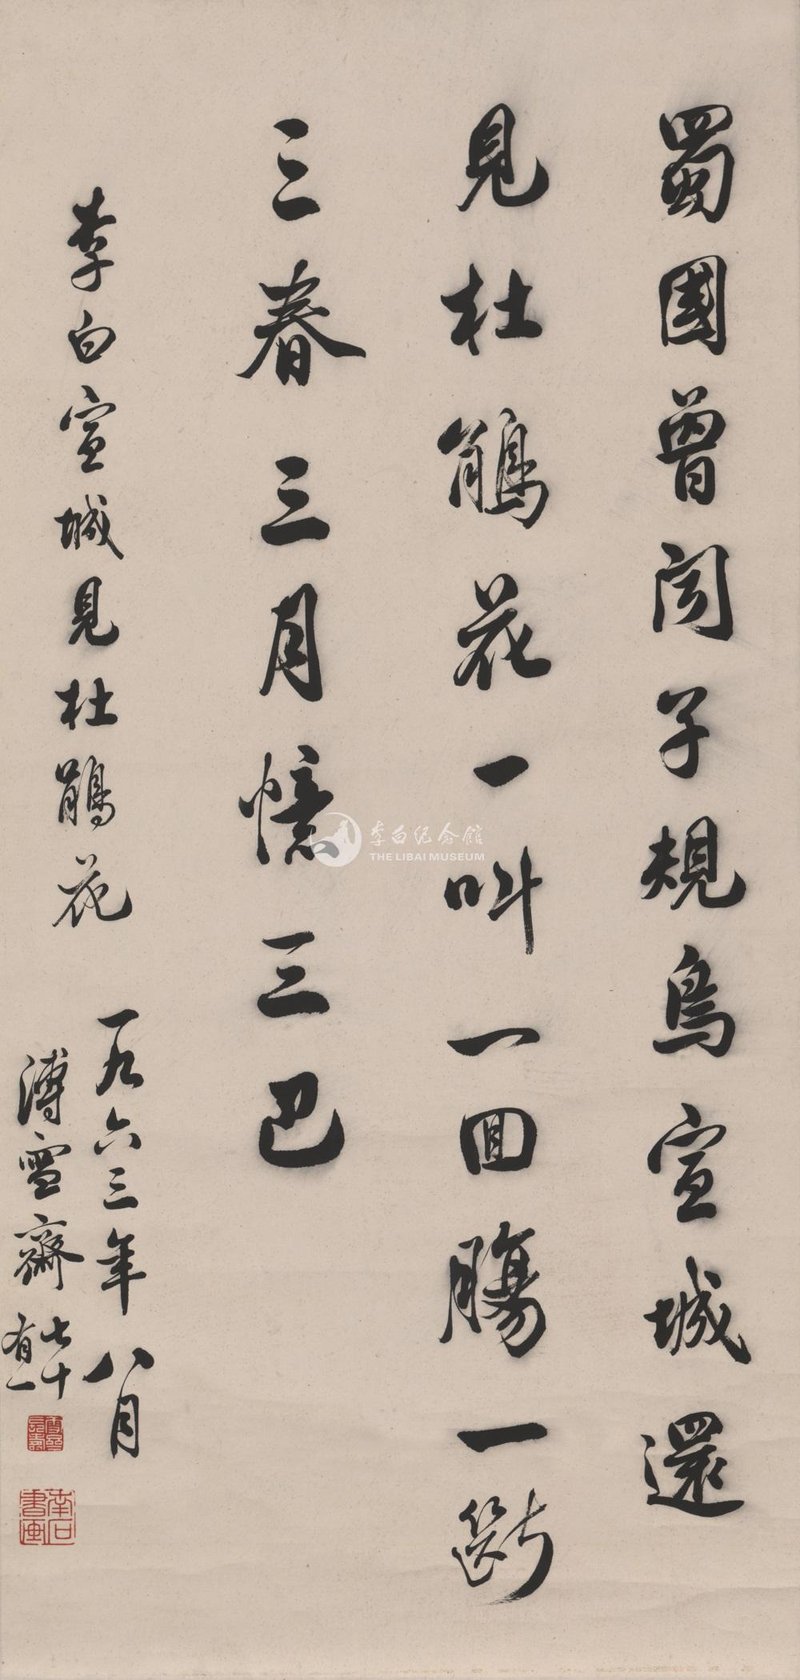 蜀國曾聞子規鳥宣城還
見杜鵑花一叫一回腸一斷
三春三月憶三巴
李白宣城見杜鵑花
一九六三年八月
溥雪齋
七十有一
李白纪念馆
THE LIBAI MUSEUM